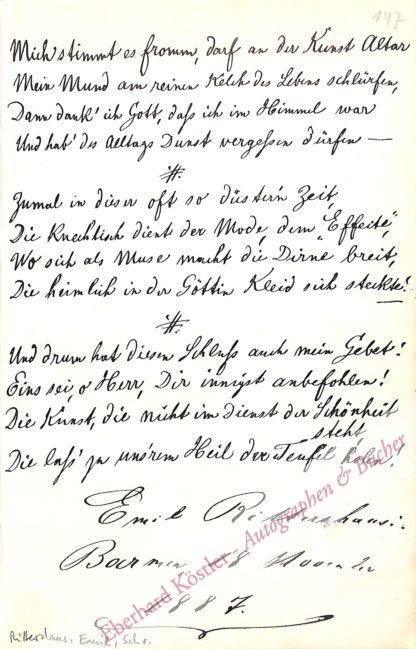 147
Mich stimmt es fromm, darf an der Kunst Altar
Mein Mund am reinen Kelch des Lebens schlürfen,
Dann dank' ich Gott, daß ich im Himmel war
Und hab' des Alltags Dunst vergessen dürfen —
#.
Zumal in dieser oft so düstern Zeit,
Die knechtisch dient der Mode, dem "Effekte",
Wo sich als Muse macht die Dirne breit,
Die heimlich in der Göttin Kleid sich steckte!
#.
Und drum hat diesen Schluß auch mein Gebet:
Eins sei, o Herr, Dir innigst anbefohlen!
Die Kunst, die nicht im Dienst der Schönheit
steht
Die laß' zu uns'rem Heil der Teufel holen!
Emil Rittershaus.
Barmen 8 November
1887.
Eberhard Köstler - Autographen & Bücher
Rittershaus, Emil, Schr.